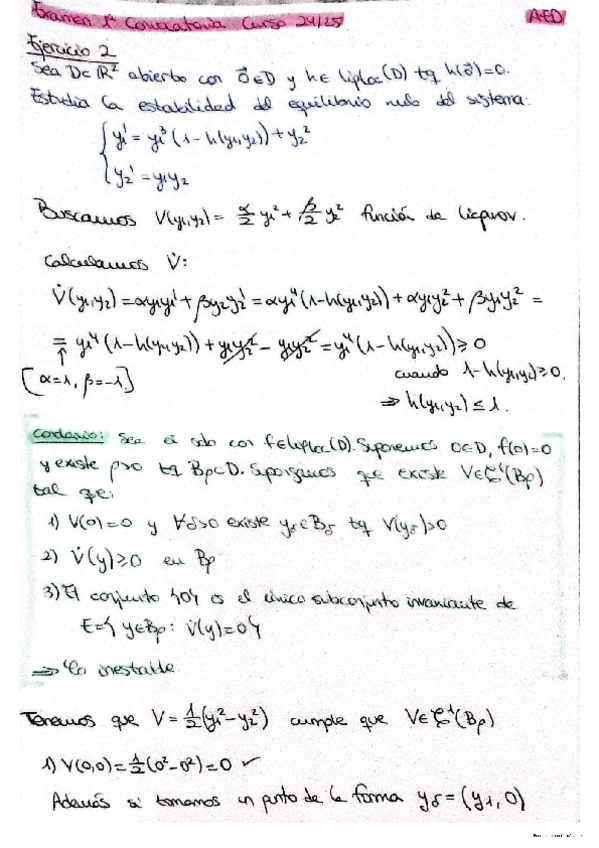 Examen 1ª Convocatoria Curso 24/25 AED
Ejercicio 2
Sea D⊂ℝ² abierto con 0⃗∈D y h∈Liploc(D) tq h(0⃗)=0.
Estudia la estabilidad del equilibrio nulo del sistema:
y₁' = y₁³(1-h(y₁,y₂))+y₂²
y₂' = y₁y₂
Buscamos V(y₁,y₂) = α/2 y₁² + β/2 y₂² función de Liapunov.
Calculamos V̇:
V̇(y₁,y₂) = αy₁y₁' + βy₂y₂' = αy₁⁴(1-h(y₁,y₂)) + αy₁y₂² + βy₁y₂² =
= y₁⁴(1-h(y₁,y₂)) + y₁y₂² - y₁y₂² = y₁⁴(1-h(y₁,y₂)) ≥ 0
[α=1, β=-1] cuando 1-h(y₁,y₂) ≥ 0.
⇒ h(y₁,y₂) ≤ 1.
Corolario: Sea el sdo con f∈Liploc(D). Suponemos 0∈D, f(0)=0
y existe ρ>0 tq Bρ⊂D. Supongamos que existe V∈C¹(Bρ)
tal que:
1) V(0)=0 y ∀δ>0 existe yδ∈Bδ tq V(yδ)>0
2) V̇(y)≥0 en Bρ
3) El conjunto {0} es el único subconjunto invariante de
E={y∈Bρ: V̇(y)=0}
⇒ φ₀ inestable
Tenemos que V = 1/2(y₁²-y₂²) cumple que V∈C¹(Bρ)
1) V(0,0) = 1/2(0²-0²) = 0 ✓
Además si tomamos un punto de la forma yδ = (y₁,0)